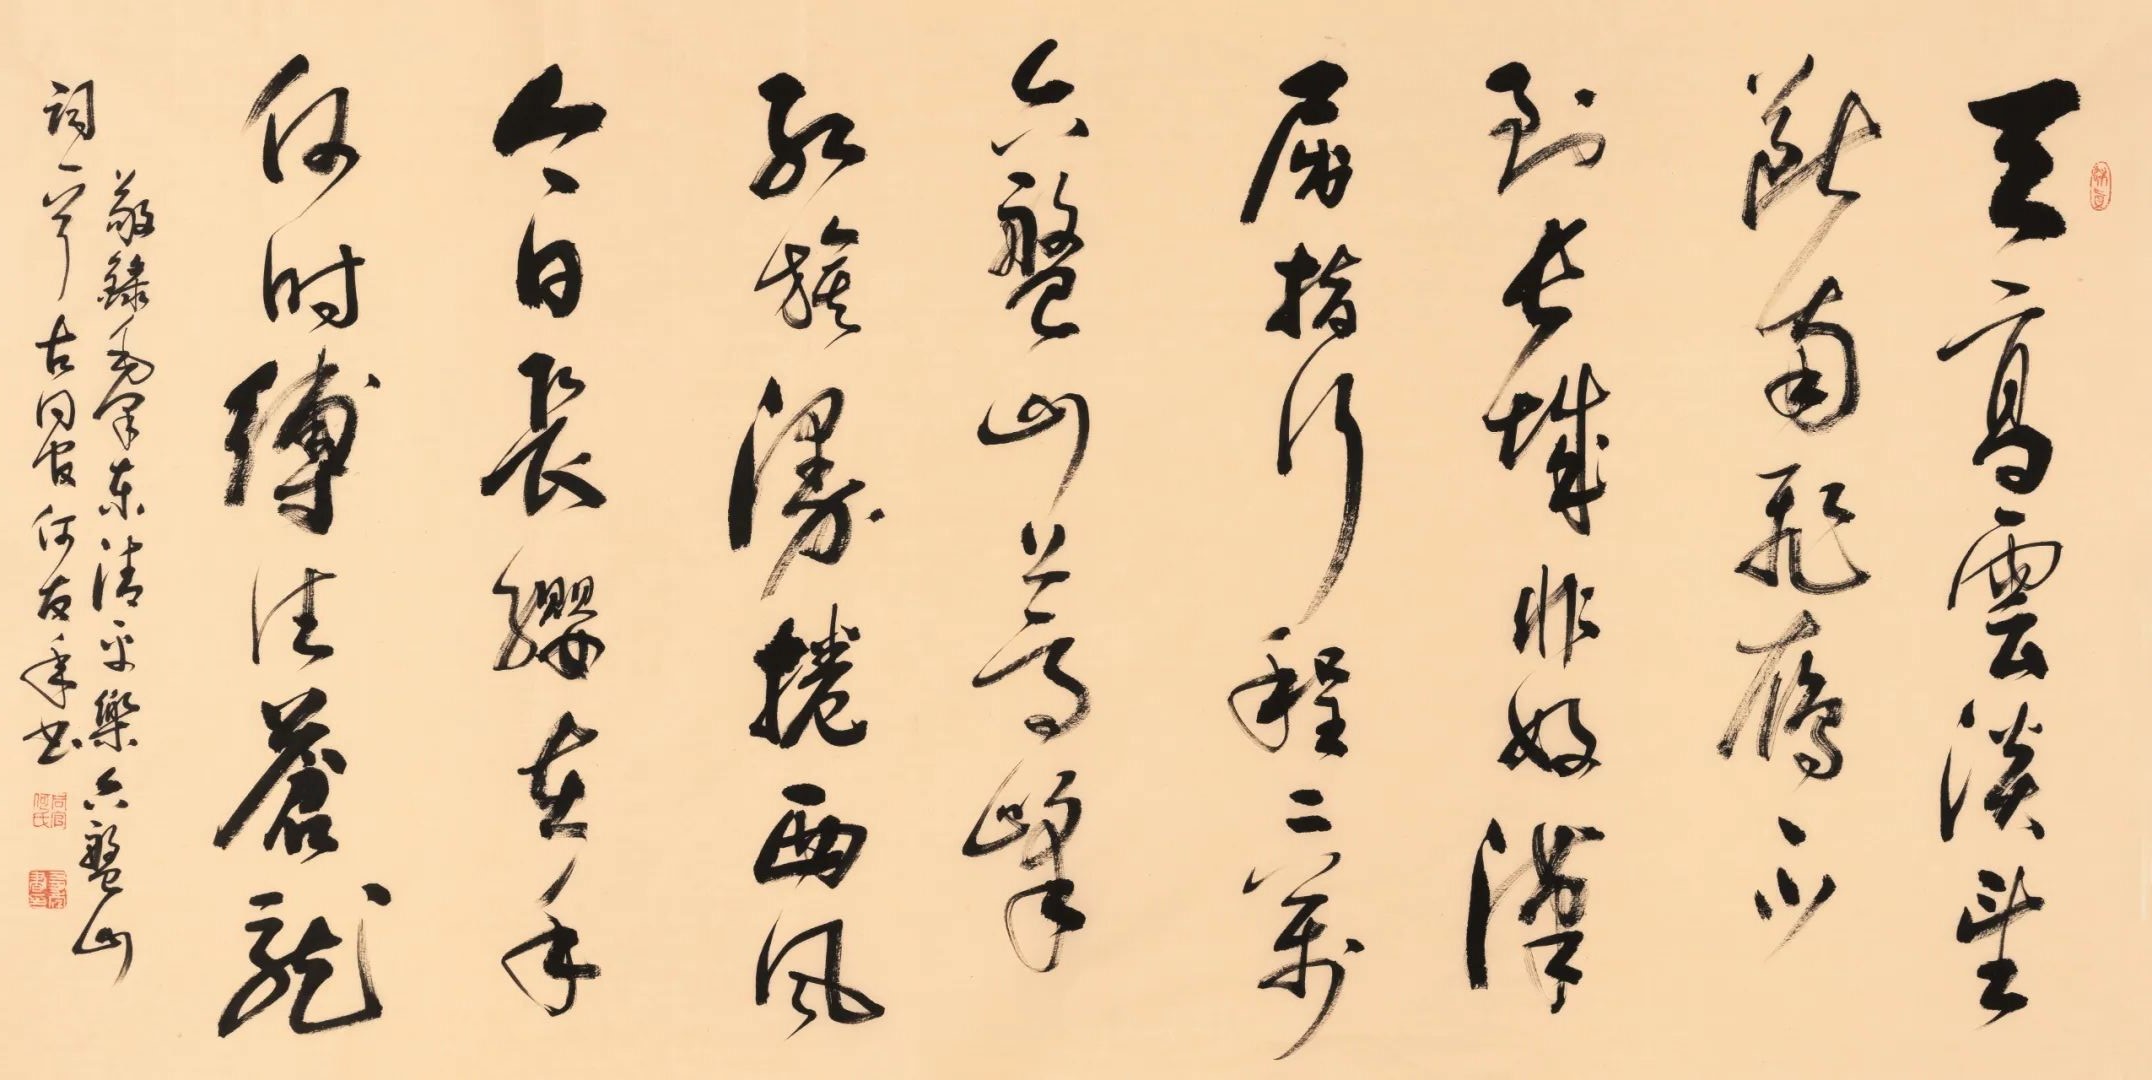 天高雲淡望
斷南飛鴈不
到长城非好漢
屈指行程二萬
六盤山上高峰
紅旗漫捲西風
今日長纓在手
何时縛住蒼龍
敬録毛澤東清平樂六盤山
詞一首 古同官何友年书
同官何氏